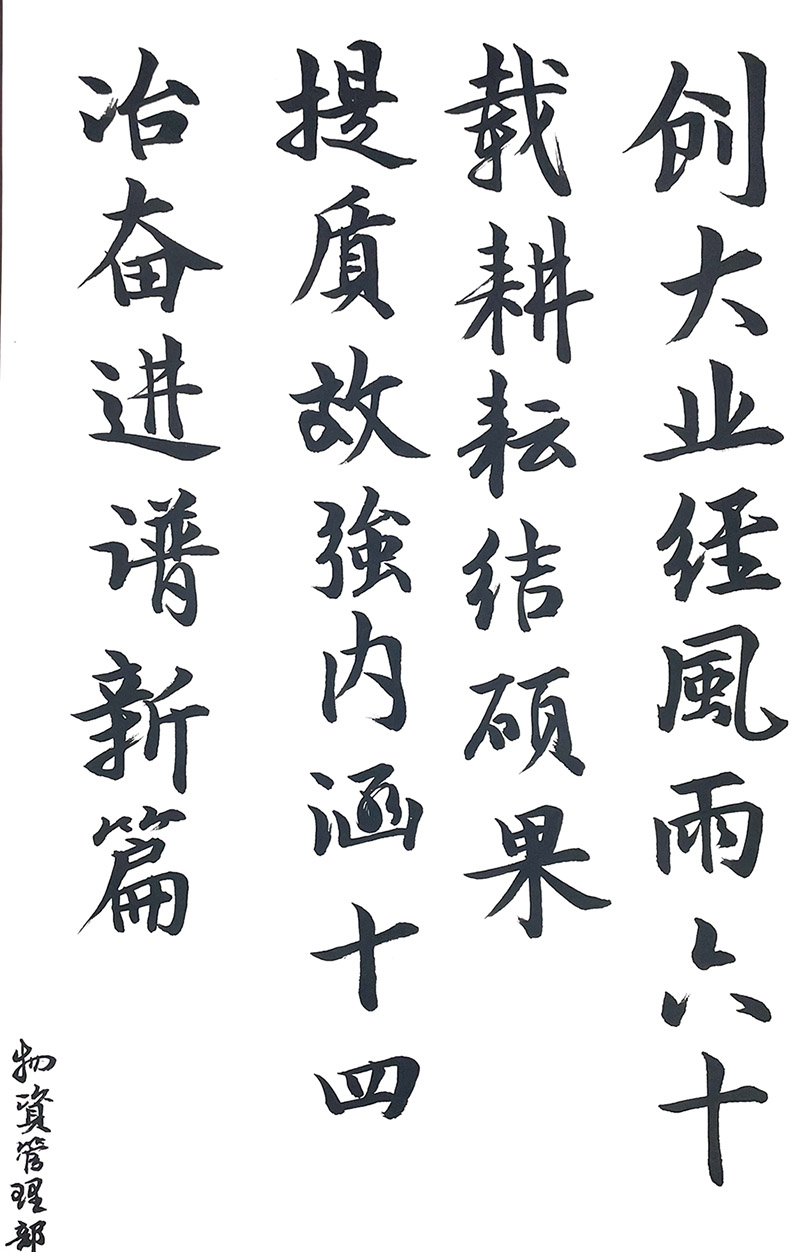 创大业经風雨六十
载耕耘结硕果
提质故強内涵十四
冶奋进谱新篇
物資管理部